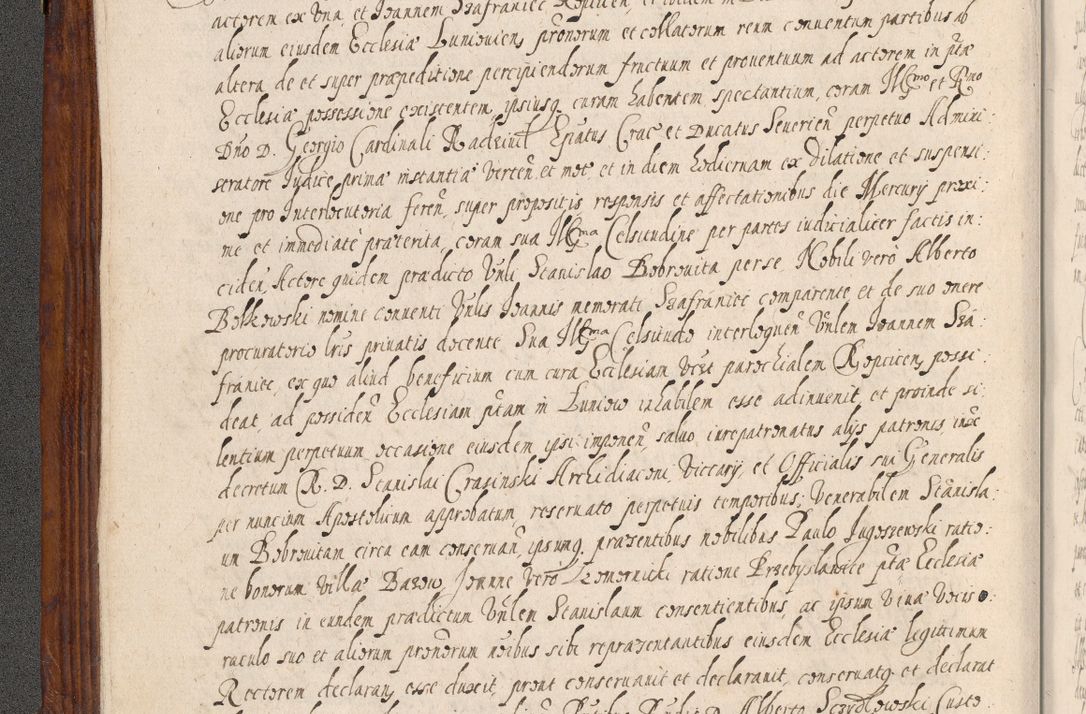 actorem ex Una, et Joannem Szafraniec Kopicien, et
aliorum eiusdem Ecclesiæ Luniovien, pronorum et collatorum reum conuentum partibus ab
altera, de et super præpeditione percipiendorum fructuum et prouentuum ad actorem in ptæ
Ecclesiæ possessione existentem, ipsiusq curam habentem spectantium, coram Illmo et Rmo
Dno D. Georgio Cardinali Radziuil Epiatus Crac et Ducatus Seuerien perpetuo Admini:
stratore Judice primæ instantiæ verten et mot, et in diem hodiernam ex dilatione et suspensi:
one pro Interlocutoria feren, super propositis responsis et affectationibus die Mercurij proxi:
me et immediatè præterita, coram sua Illma Celsitudine per partes iudicialiter factis in:
ciden, Actore quidem prædicto Vnli Stanislao Bobrouita per se, Nobili verò Alberto
Bolkowski nomine conuenti Vnlis Joannis memorati Szafraniec comparente, et de suo onere
procuratorio lris priuatis docente. Sua Illma Celsitudo interloquen Vnlem Joannem Sza:
franiec, ex quo aliud beneficium cum cura Ecclesiam vczt parochialem Kopicien, possi:
deat, ad possiden Ecclesiam ptam in Luniow inhabilem esse adinuenit, et proinde si:
lentium perpetuum occasione eiusdem ipsi imponen, saluo iurepatronatus alijs patronis, iuxe
decretum R. D. Stanislai Crasinski Archidiaconi, Viccarij, et Officialis sui Generalis
per nuncium Apostolicum approbatum, reseruato perpetuis temporibus, Venerabilem Stanisla:
um Bobrouitam circa eam conseruan, ipsumq præsentibus nobilibus Paulo Jugoszewski ratio:
ne bonorum villæ Bazow, Joanne verò Komornicki ratione Przebyslawice ptæ Ecclesiæ
patronis in eundem prædictum Vnlem Stanislaum consentientibus, ac ipsum viuæ vocis o:
raculo suo et aliorum pronorum noibus sibi repræsentantibus eiusdem Ecclesiæ legittimum
Rectorem declaran, esse duxit, prout conseruauit et declarauit, conseruatq et declarat
D. Alberto Sczydlowski Custo: